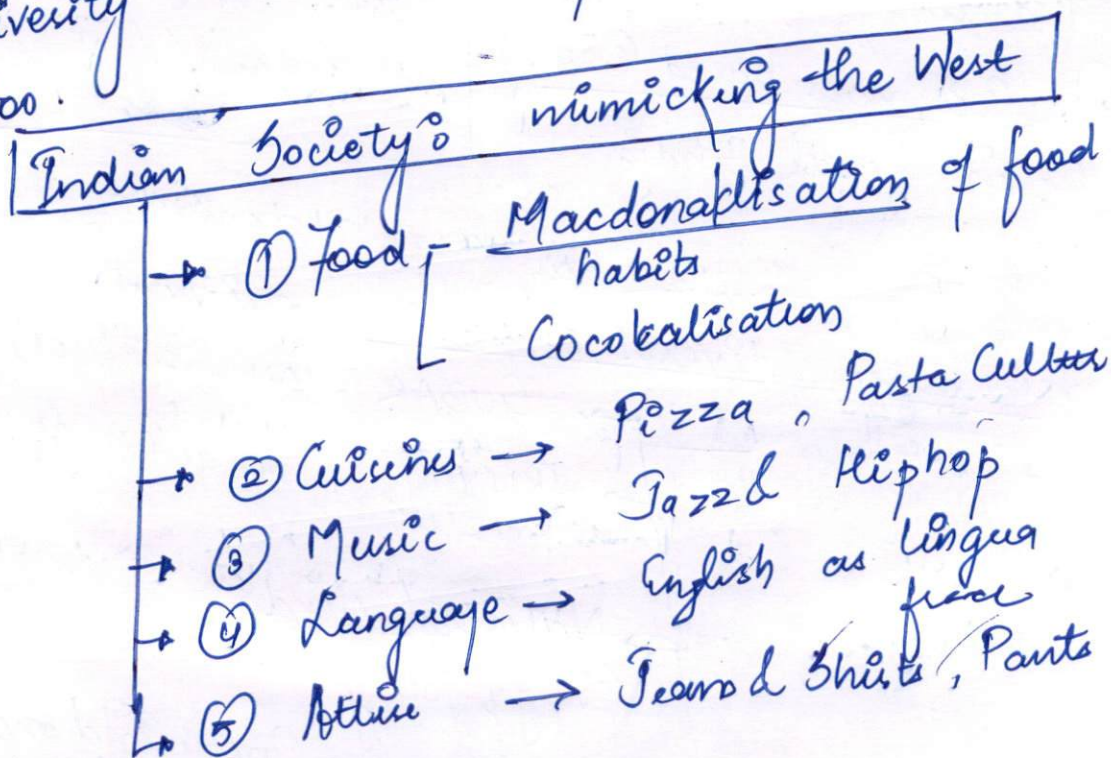 iversity
oo.
Indian Society: mimicking the West
→ ① Food - Macdonaldisation of food
habits
Cocokalisation
→ ② Cuisines → Pizza, Pasta Culture
→ ③ Music → Jazz & Hiphop
→ ④ Language → English as lingua
franca
→ ⑤ Attire → Jeans & Shirts, Pants